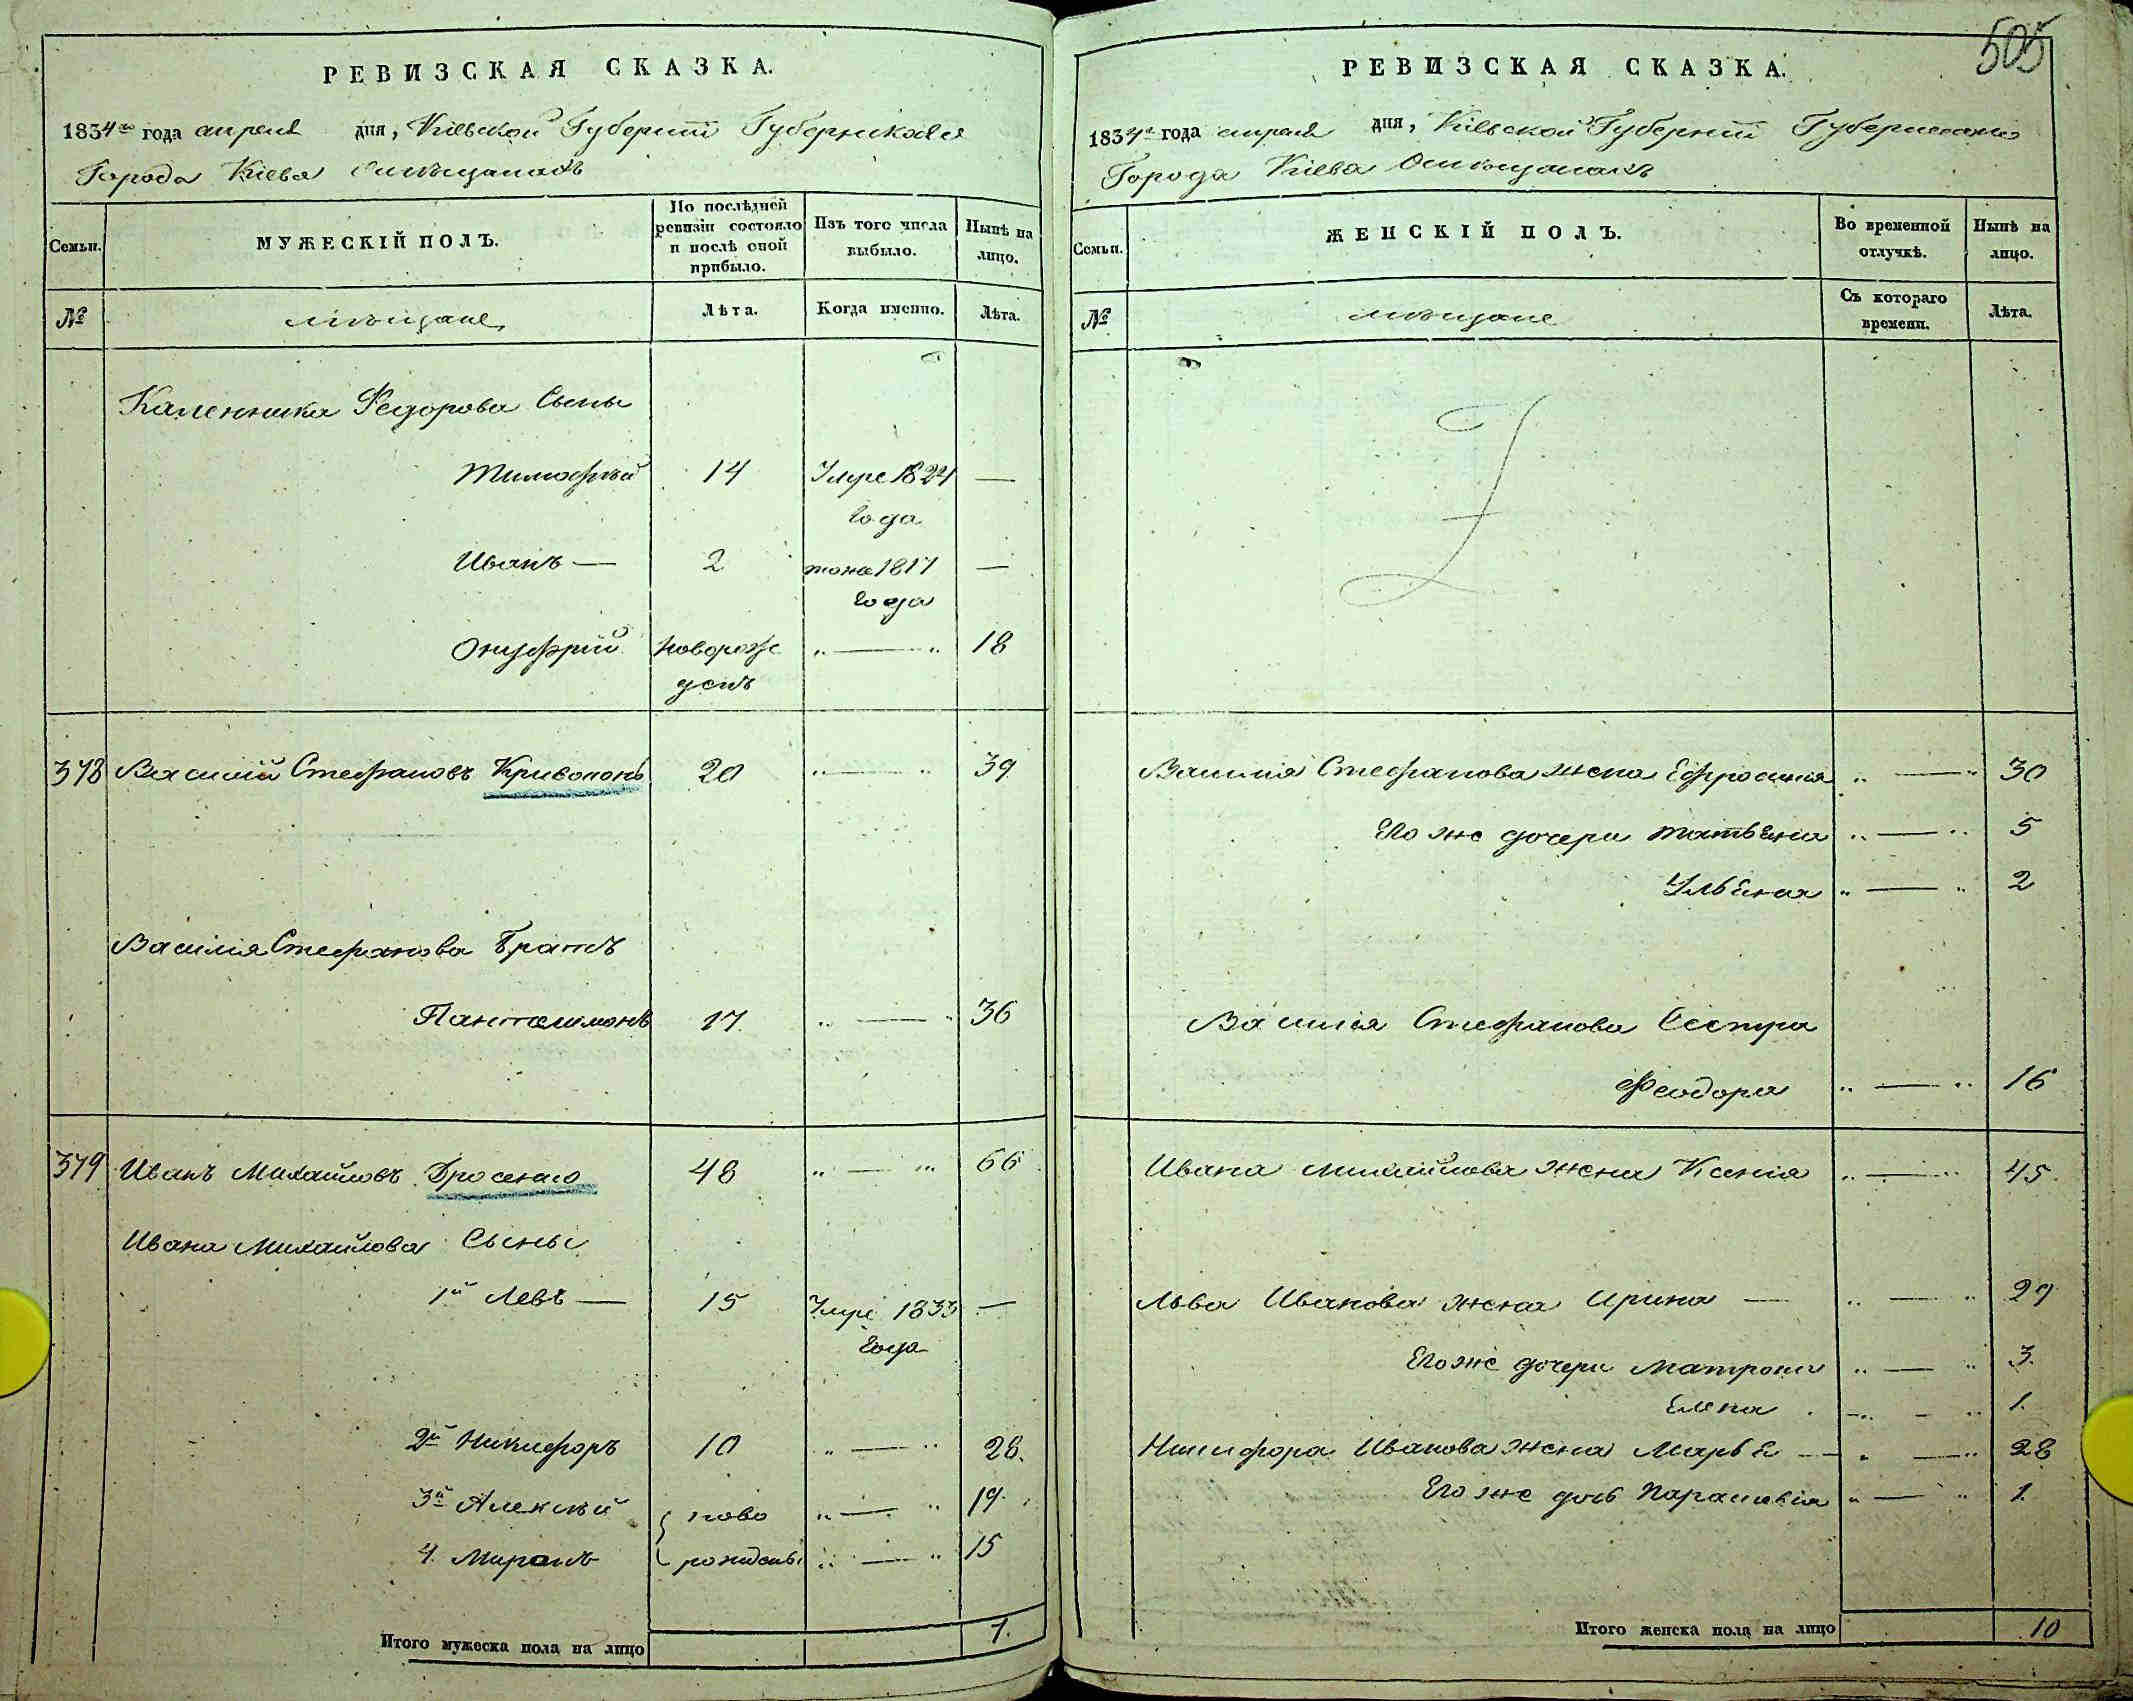 РЕВИЗСКАЯ СКАЗКА.
1834го года апреля дня, Кіевской Губерніи Губернскаго
Города Кіева О мѣщанахъ
Семьи.
МУЖЕСКІЙ ПОЛЪ.
По послѣдней ревизіи состояло и послѣ оной прибыло.
Изъ того числа выбыло.
Нынѣ на лицо.
№
мѣщане
Лѣта.
Когда именно.
Лѣта.
Каленника Федорова Сыны
Тимофѣй 14 Умре 1824 —
года
Иванъ — 2 тоже 1817 —
года
Онуфрій новорож „ — „ 18
денъ
378 Василій Стефановъ Кривопонъ 20 „ — „ 39
Василія Стефанова Братъ
Пантелимонъ 17 „ — „ 36
379 Иванъ Михайловъ Дросенко 48 „ — „ 66
Ивана Михайлова Сыны
1й Левъ — 15 Умре 1833 —
года
2й Никифоръ 10 „ — „ 28.
3й Алексѣй ново „ — „ 19
4. Миронъ рождены „ — „ 15
Итого мужеска пола на лицо 7.
505
РЕВИЗСКАЯ СКАЗКА.
1834го года апреля дня, Кіевской Губерніи Губернскаго
Города Кіева О мѣщанахъ
Семьи.
ЖЕНСКІЙ ПОЛЪ.
Во временной отлучкѣ.
Нынѣ на лицо.
№
мѣщане
Съ котораго времени.
Лѣта.
Василія Стефанова жена Ефросинія „ — „ 30
Его же дочери Татьяна „ — „ 5
Ульяна „ — „ 2
Василія Стефанова Сестра
Феодора „ — „ 16
Ивана Михайлова жена Ксенія „ — „ 45
Льва Иванова жена Ирина — „ — „ 29
Его же дочери Матрона „ — „ 3.
Елена „ — „ 1.
Никифора Иванова жена Марья — „ — „ 28
Его же дочь Параскевія „ — „ 1.
Итого женска пола на лицо 10